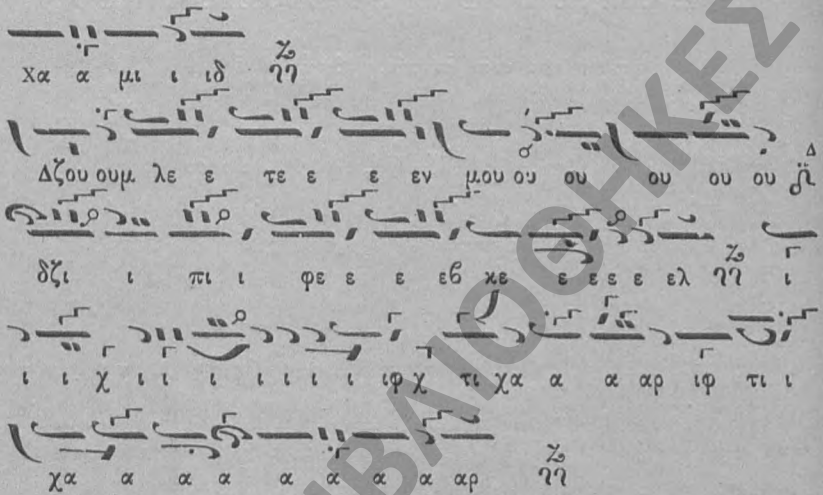 χα α μι ι ιδ
Δζου ουμ λε ε τε ε ε εν μου ου ου ου ου ου
δζι ι πι ι φε ε ε εβ κε ε ε ε ε ελ ι
ι ι χ ι ι ι ι ι ι ι ιφ χ τι χα α α αρ ιφ τι ι
χα α α α α α α α αρ
ΒΙΒΛΙΟΘΗΚΕΣ